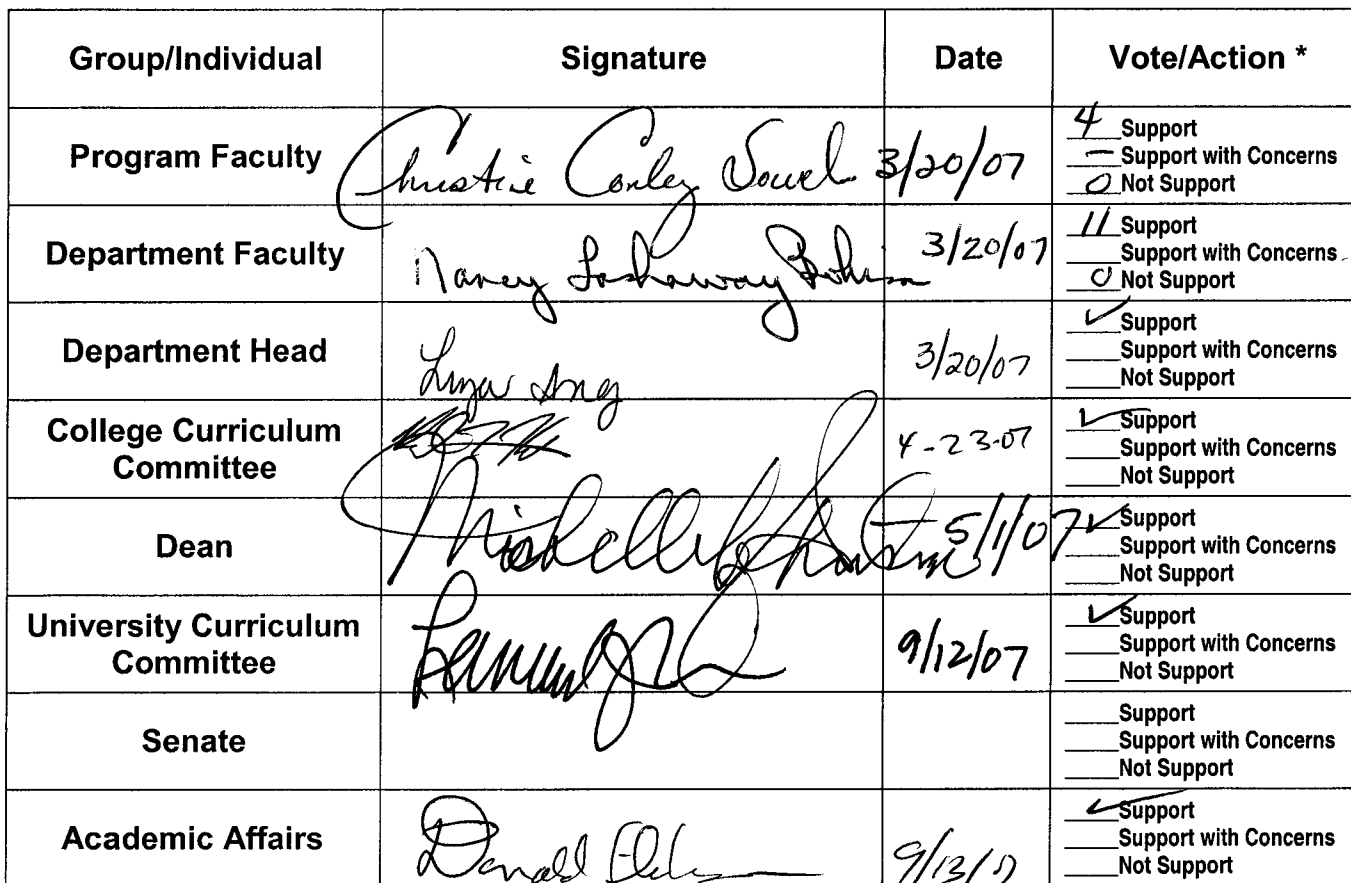 Group/Individual Signature Date Vote/Action *
Program Faculty Christine Conley Sowel 3/20/07
4 Support
– Support with Concerns
0 Not Support
Department Faculty Nancy 3/20/07
11 Support
Support with Concerns
0 Not Support
Department Head 3/20/07
✓ Support
Support with Concerns
Not Support
College Curriculum
Committee
4-23-07
✓ Support
Support with Concerns
Not Support
Dean 5/1/07
✓ Support
Support with Concerns
Not Support
University Curriculum
Committee
9/12/07
✓ Support
Support with Concerns
Not Support
Senate
Support
Support with Concerns
Not Support
Academic Affairs Donald 9/13/07
✓ Support
Support with Concerns
Not Support